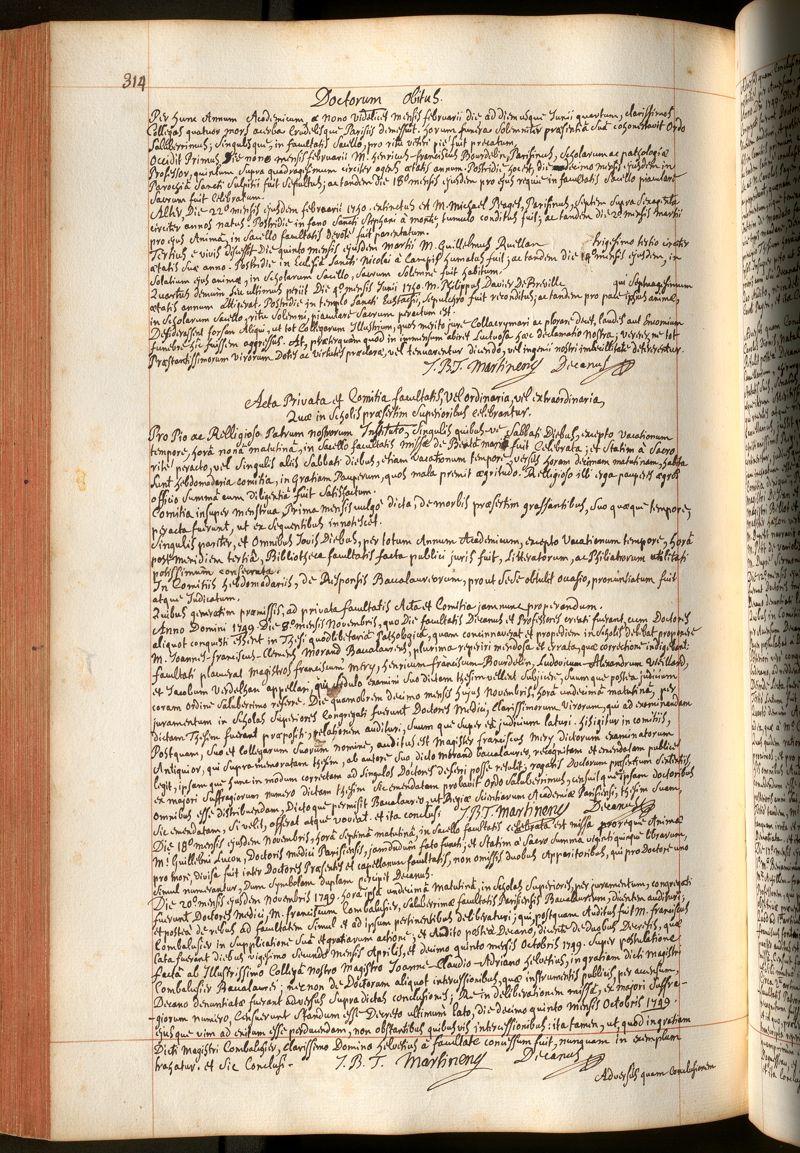 314
Doctorum obitus.
Per hunc Annum Academicum, a nono videlicet mensis februarii die ad diem usque Junii quartum, clarissimos
Collegas quatuor mors acerba crudelisque Parisiis demessuit. horum funera solemniter præsentiâ suâ cohonestavit Ordo
Saluberrimus, singulisque, in facultatis sacello, pro ritu veteri pie fuit precatum.
Occidit Primus Die nono mensis februarii M. henricus-franciscus Bourdelin, Parisinus, Scholarum ac pathologiæ
Professor, quintum supra quadragesimum circiter agens ætatis annum. Postridie hoc est, die decimo mensis ejusdem in
Parochiâ Sancti Sulpitii fuit sepultus; ac tandem die 18ª mensis ejusdem pro ejus requie in facultatis sacello piaculare
sacrum fuit celebratum.
Alter Die 22ª mensis ejusdem februarii 1750. extinctus est M. Michael Peaget, Parisinus, septem supra sexaginta
circiter annos natus. Postridie in fano Sancti Stephani à monte, tumulo conditus fuit; ac tandem die 20 mensis Martii
pro ejus Animâ, in sacello facultatis devotè fuit parentatum.
Tertius e vivis discessit Die quinto mensis ejusdem martii M. Guillelmus Ruellan trigesimo tertio circiter
ætatis suæ anno. Postridie in Ecclesiâ Sancti Nicolai à Campis humatus fuit; ac tandem die 14º mensis ejusdem, in
Solatium ejus animæ, in scholarum sacello, sacrum solemne fuit habitum.
Quartus demum seu ultimus periit Die 4º mensis Junii 1750. M. Philippus Davier De Breville qui septuagesimum
ætatis annum attigerat. Postridie in templo Sancti Eustachii, sepulchro fuit reconditus; ac tandem pro pace ipsius animæ,
in scholarum sacello, ritu solemni, piaculare sacrum peractum est.
Desiderassent forsan Aliqui, ut tot Collegarum Illustrium, quos merito jure collacrymari ac plorare decet, laudes aut encomium
funebre hic fuissem aggressus. At, præterquam quod in immensum abiret luctuosa hæc declamatio nostra; vererer ne tot
Præstantissimorum virorum Dotes ac virtutes præclaræ, vel tenuarentur dicendo, vel ingenii nostri imbecillitate detererentur.
J. B. T. Martinenq Decanus
Acta Privata et Comitia facultatis, vel ordinaria, vel extraordinaria,
Quæ in Scholis præsertim Superioribus celebrantur.
Pro Pio ac Religioso Patrum nostrorum Instituto, singulis quibus-ve sabbati Diebus, excepto vacationum
tempore, horâ nonâ matutinâ, in sacello facultatis missa de Beatâ mariâ fuit celebrata; et statim à sacro
rite peracto, vel singulis aliis sabbati diebus, etiam vacationum tempore, versus horam decimam matutinam, habita
sunt hebdomadaria comitia, in gratiam Pauperum, quos mala premit ægritudo. Religioso illi erga pauperes ægros
officio summâ cum diligentiâ fuit satisfactum.
Comitia insuper menstrua Prima mensis vulgo dicta, de morbis præsertim grassantibus, suo quæque tempore,
peracta fuerunt, ut ex sequentibus innotescet.
Singulis pariter, et omnibus Jovis Diebus, per totum Annum Academicum, excepto vacationum tempore, horâ
post meridiem tertiâ, Bibliotheca facultatis facta publici juris fuit, Litteratorum, ac Philiatrorum utilitati
potissimum consecrata.
In Comitiis hebdomadariis, de Responsis Baccalaureorum, prout sese obtulit occasio, pronunciatum fuit
atque Judicatum.
Quibus generatim præmissis, ad privata facultatis Acta et Comitia jam nunc properandum.
Anno Domini 1749. Die 8º mensis Novembris, quo Die facultatis Decanus et Professores creati fuerant, cum Doctores
aliquot conquesti essent in Thesi quodlibetariâ Pathologicâ, quam concinnaverat et propediem in Scholis debebat proponere
M. Joannes-franciscus-Clemens Morand Baccalaureus, plurima reperiri mendosa et errata, quæ correctione indigebant;
facultati placuerat Magistros franciscum Mery, henricum-franciscum-Bourdelin, Ludovicum-Alexandrum Vieillard,
et Jacobum Verdelhan appellari, qui sedulo examini suo dictam thesim vellent subjicere, suumque postea judicium
coram ordine saluberrimo referre. Die quamobrem decimo mensis hujus Novembris, horâ undecimâ matutinâ, per
juramentum in Scholas Superiores Congregati fuerunt Doctores Medici, clarissimorum Virorum, qui ad examinandam
dictam Thesim fuerant præpositi, relationem audituri, suum que super eâ judicium laturi. hisigitur in comitiis,
Postquam, suo et collegarum suorum nomine, auditus est Magister franciscus Mery Doctorum examinatorum
Antiquior, qui supra memoratam thesim, ab autore suo dicto Morand baccalaureo, recognitam et emendatam publice
legit, ipsam qui hunc in modum correctam ad singulos Doctores deferri posse retulit; rogatis Doctorum præsentum sententiis,
ex majori suffragiorum numero dictam thesim sic emendatam probavit Ordo saluberrimus, censuit que ipsam doctoribus
omnibus esse distribuendam, Dictoque permisit Baccalaureo, ut Regiæ Scientiarum Academiæ Parisiensi, thesim suam,
sic emendatam, si velit, offerat atque voveat. et ita conclusi J. B. T. Martinenq Decanus
Die 18º mensis ejusdem Novembris, horâ septimâ matutinâ, in sacello facultatis celebrata est missa pro requie Animæ
M. Guillelmi Lucon, Doctoris medici Parisiensis, jamdudum fato functi; et statim à sacro summa viginti quinque librarum,
pro more, divisa fuit inter Doctores Præsentes et capellanum facultatis, non omissis duobus Apparitoribus, qui pro Doctore uno
simul numerantur, Dum symbolam duplam excipit Decanus.
Die 20º mensis ejusdem Novembris 1749. horâ ipsâ undecimâ matutinâ, in Scholas Superiores, per juramentum, congregati
fuerunt Doctores Medici, M. franciscum Combalusier, saluberrimæ facultatis Parisiensis Baccalaureum, dicentem audituri;
et postea de rebus ad facultatem simul et ad ipsum pertinentibus deliberaturi; qui, postquam Auditus fuit M. franciscus
Combalusier in supplicatione suâ et gratiarum actione; et Audito postea Decano, disserente de duobus Decretis, quæ
lata fuerunt diebus vigesimo secundo mensis Aprilis, et decimo quinto mensis Octobris 1749. super postulatione
factâ ab Illustrissimo Collegâ nostro Magistro Joanne-Claudio-Adriano helvetius, in gratiam dicti magistri
Combalusier Baccalaurei; nec non de Doctorum aliquot intercessionibus, quæ instrumentis publicis, per accensum,
Decano denuntiatæ fuerant adversus supra dictas conclusiones; Re in deliberationem missâ, ex majori suffra-
giorum numero, censuerunt standum esse Decreto ultimum lato, die decimo quinto mensis Octobris 1749.
ejus que vim ad exitum esse perducendam, non obstantibus quibusvis intercessionibus: ita tamen, ut, quod in gratiam
Dicti magistri Combalusier, clarissimo Domino helvetius à facultate concessum fuit, nunquam in exemplum
trahatur. et sic conclusi. J. B. T. Martinenq Decanus
Adversus quam conclusionem